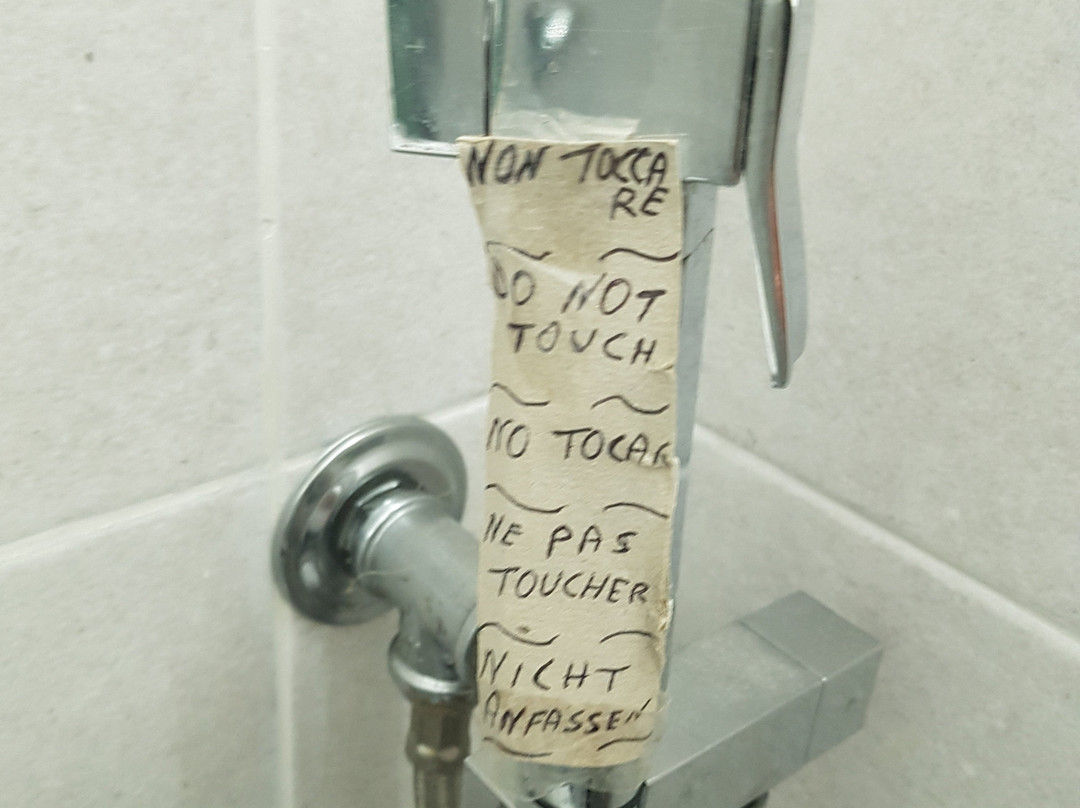 NON TOCCA
RE
DO NOT
TOUCH
NO TOCAR
NE PAS
TOUCHER
NICHT
ANFASSEN